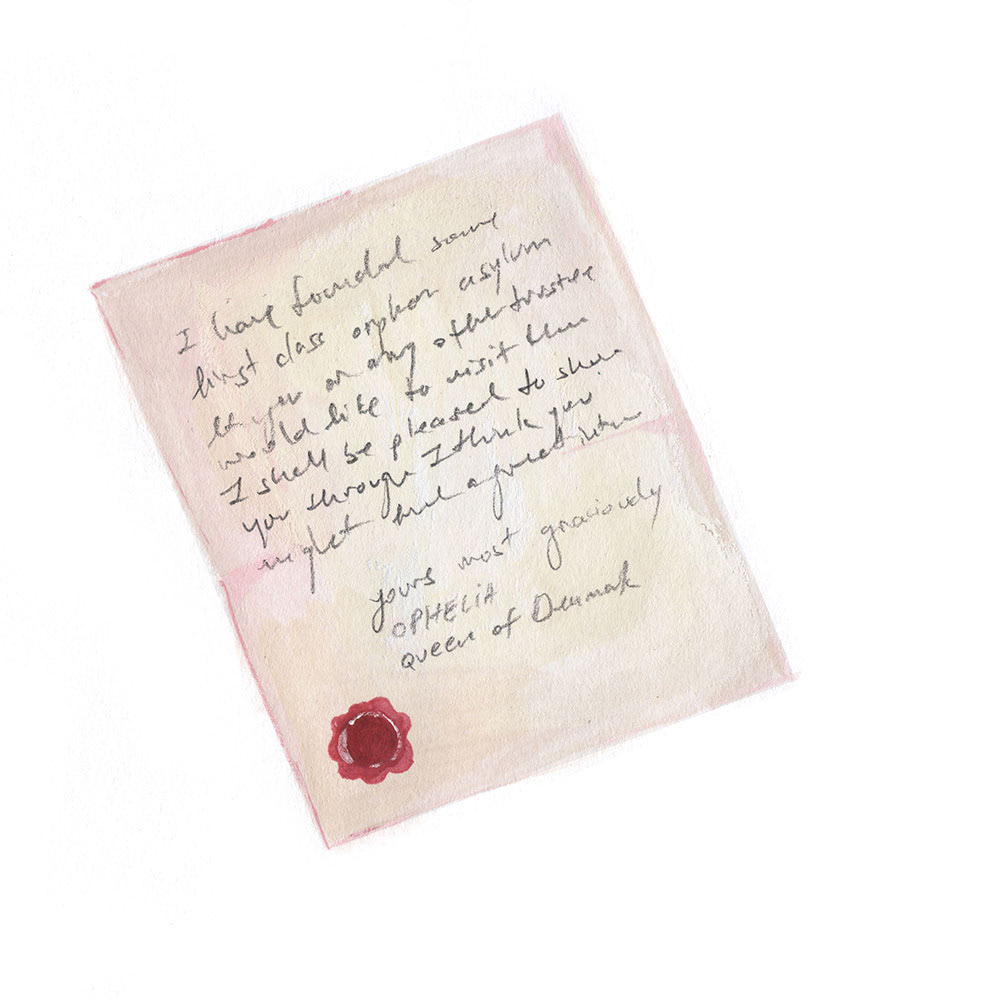 I have founded some
first class orphan asylum
If you or any other trustee
would like to visit them
I shall be pleased to show
you through I think you
might find a great
yours most graciously
OPHELIA
queen of Denmark